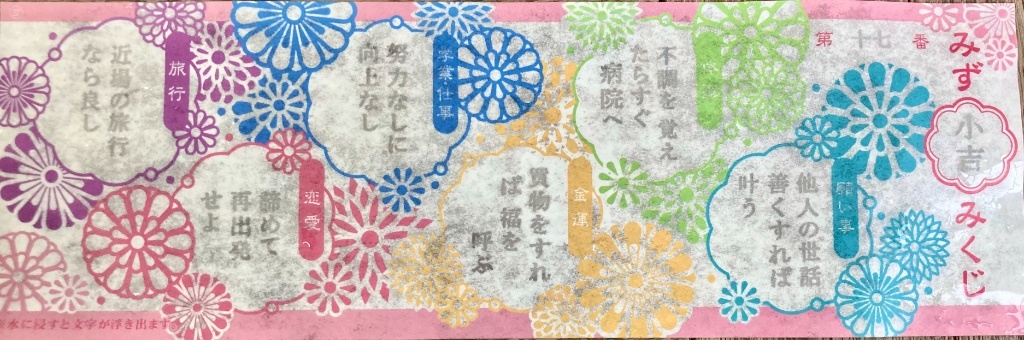 第十七番
みず
小吉
みくじ
願い事
他人の世話
善くすれば
叶う
不調を覚え
たらすぐ
病院へ
金運
買物をすれ
ば福を
呼ぶ
学業仕事
努力なしに
向上なし
恋愛
諦めて
再出発
せよ
旅行
近場の旅行
なら良し
水に浸すと文字が浮き出ます。